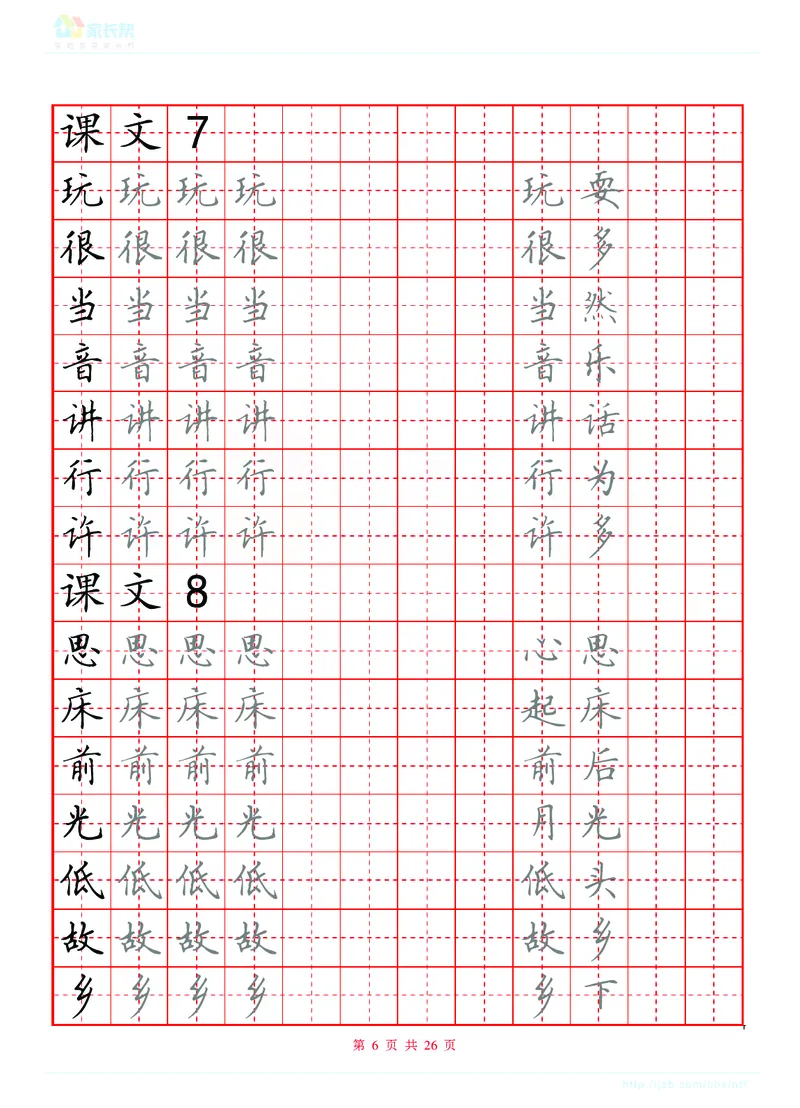 家长帮
课文7
玩玩玩玩 玩耍
很很很很 很多
当当当当 当然
音音音音 音乐
讲讲讲讲 讲话
行行行行 行为
许许许许 许多
课文8
思思思思 心思
床床床床 起床
前前前前 前后
光光光光 月光
低低低低 低头
故故故故 故乡
乡乡乡乡 乡下
第 6 页 共 26 页